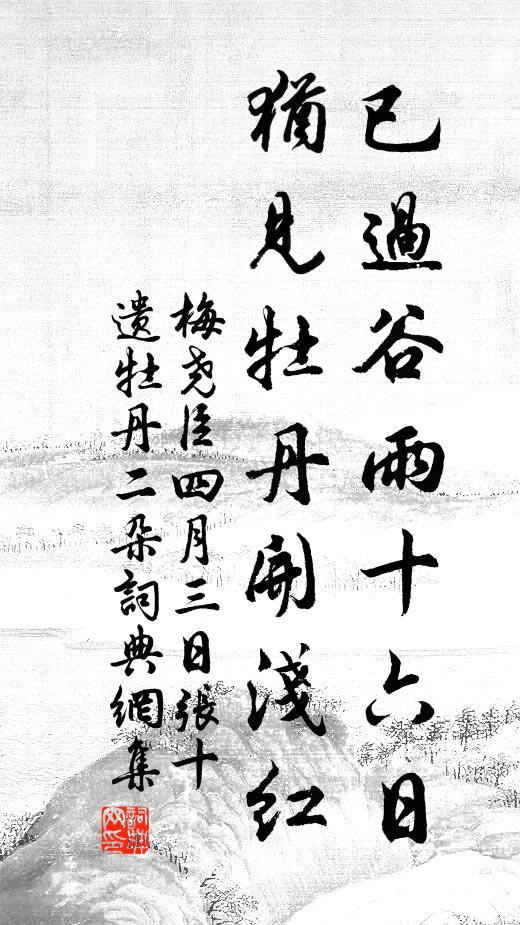 已過谷雨十六日
猶見牡丹開淺紅
梅堯臣四月三日張十
遺牡丹二朵詞典網集